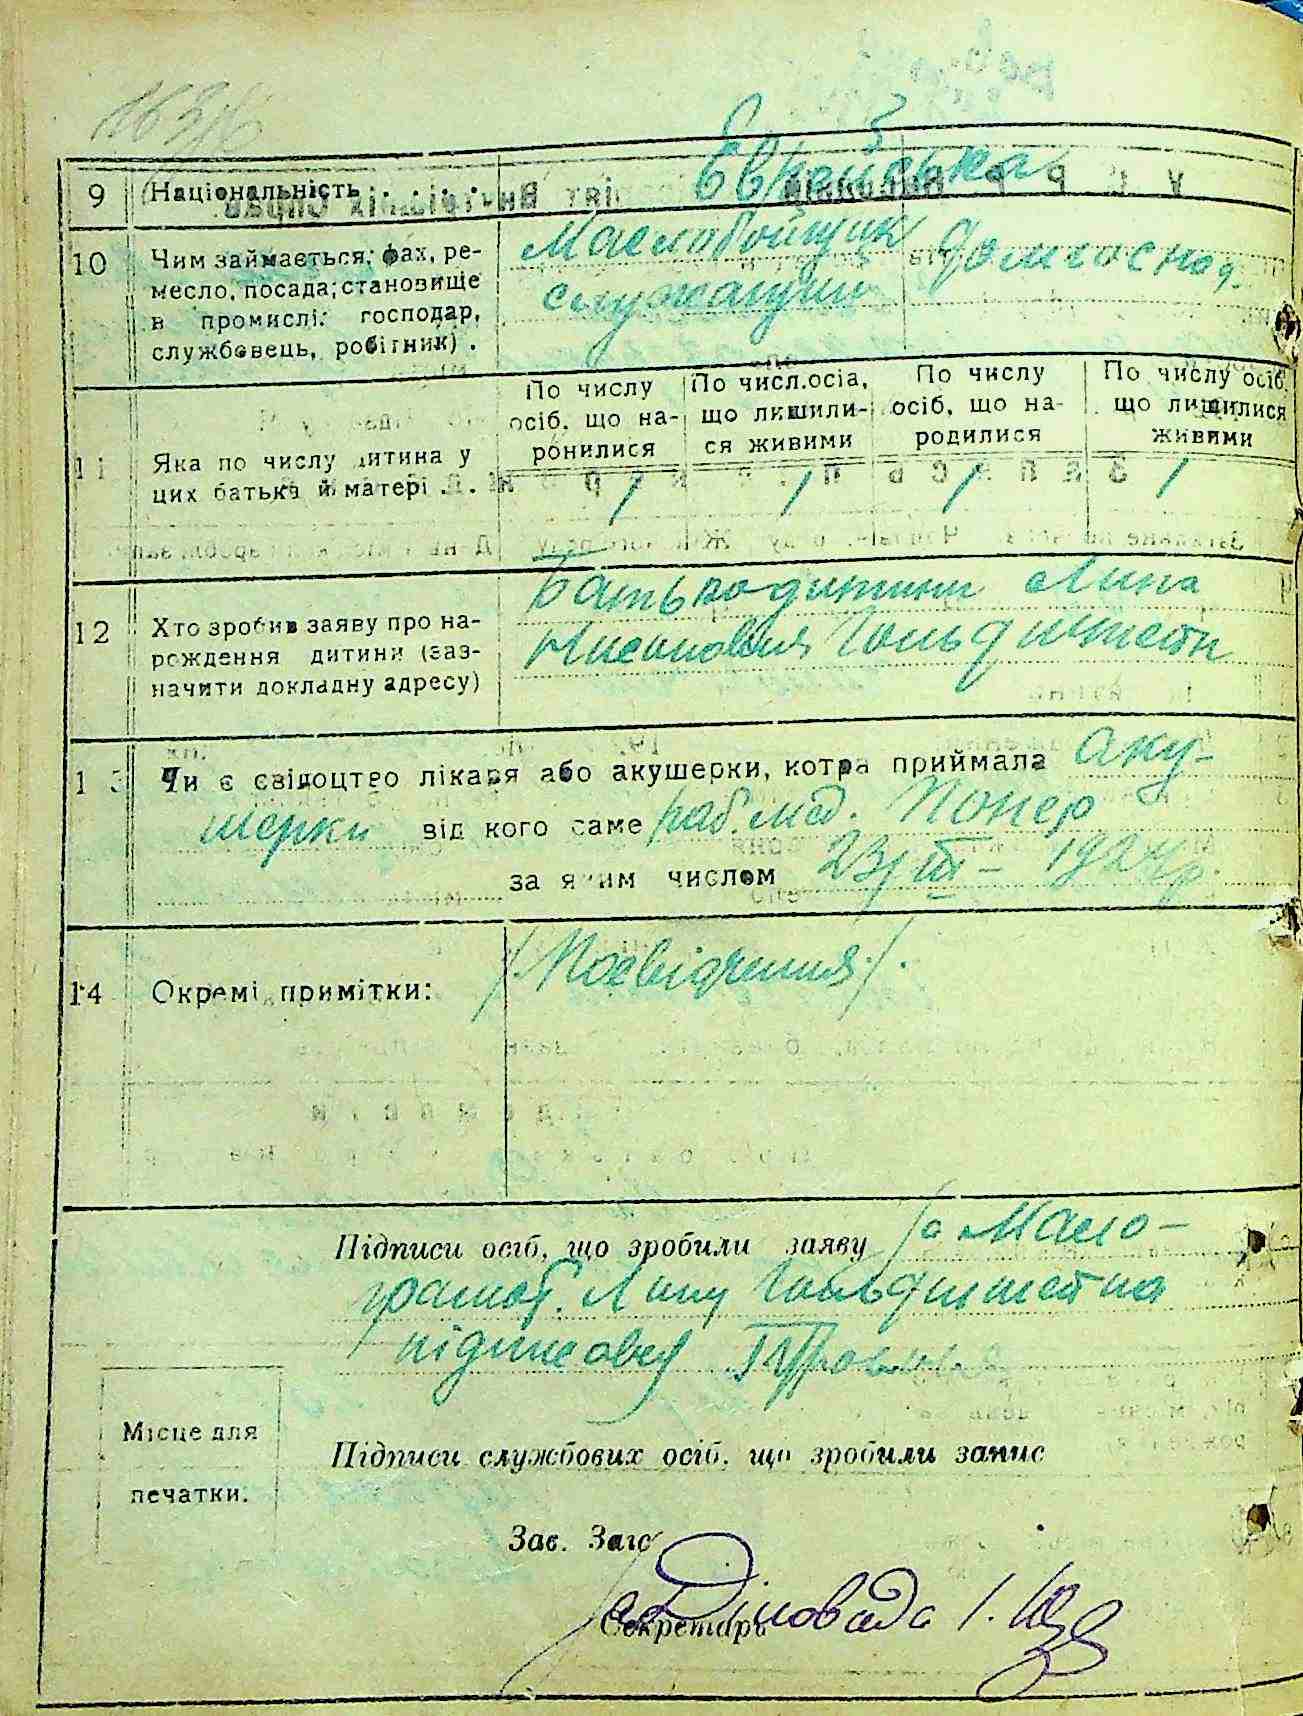 163/6
9 Національність Єврейська
10 Чим займається; фах, ре-
месло, посада; становище
в промислі: господар,
службовець, робітник).
Маслобойщик
служащий
домгоспод.
11 Яка по числу дитина у
цих батька й матері . .
По числу
осіб, що на-
ронилися
По числ.осіа,
що лишили-
ся живими
По числу
осіб, що на-
родилися
По числу осіб,
що лишилися
живими
1 1 1 1
12 Хто зробив заяву про на-
рождення дитини (заз-
начити докладну адресу)
Батько дитини Липа
Нисонович Гольдштейн
13 Чи є свідоцтво лікаря або акушерки, котра приймала аку-
шерки від кого саме раб. мед.
за яким числом 23/III – 1924 р.
14 Окремі примітки:
/Посвідчення/.
Підписи осіб, що зробили заяву За Мало-
грамот. Липу Гольдштейна
підписовся
Місце для
печатки.
Підписи службових осіб, що зробили запис
Зав. Загс
Секретарь